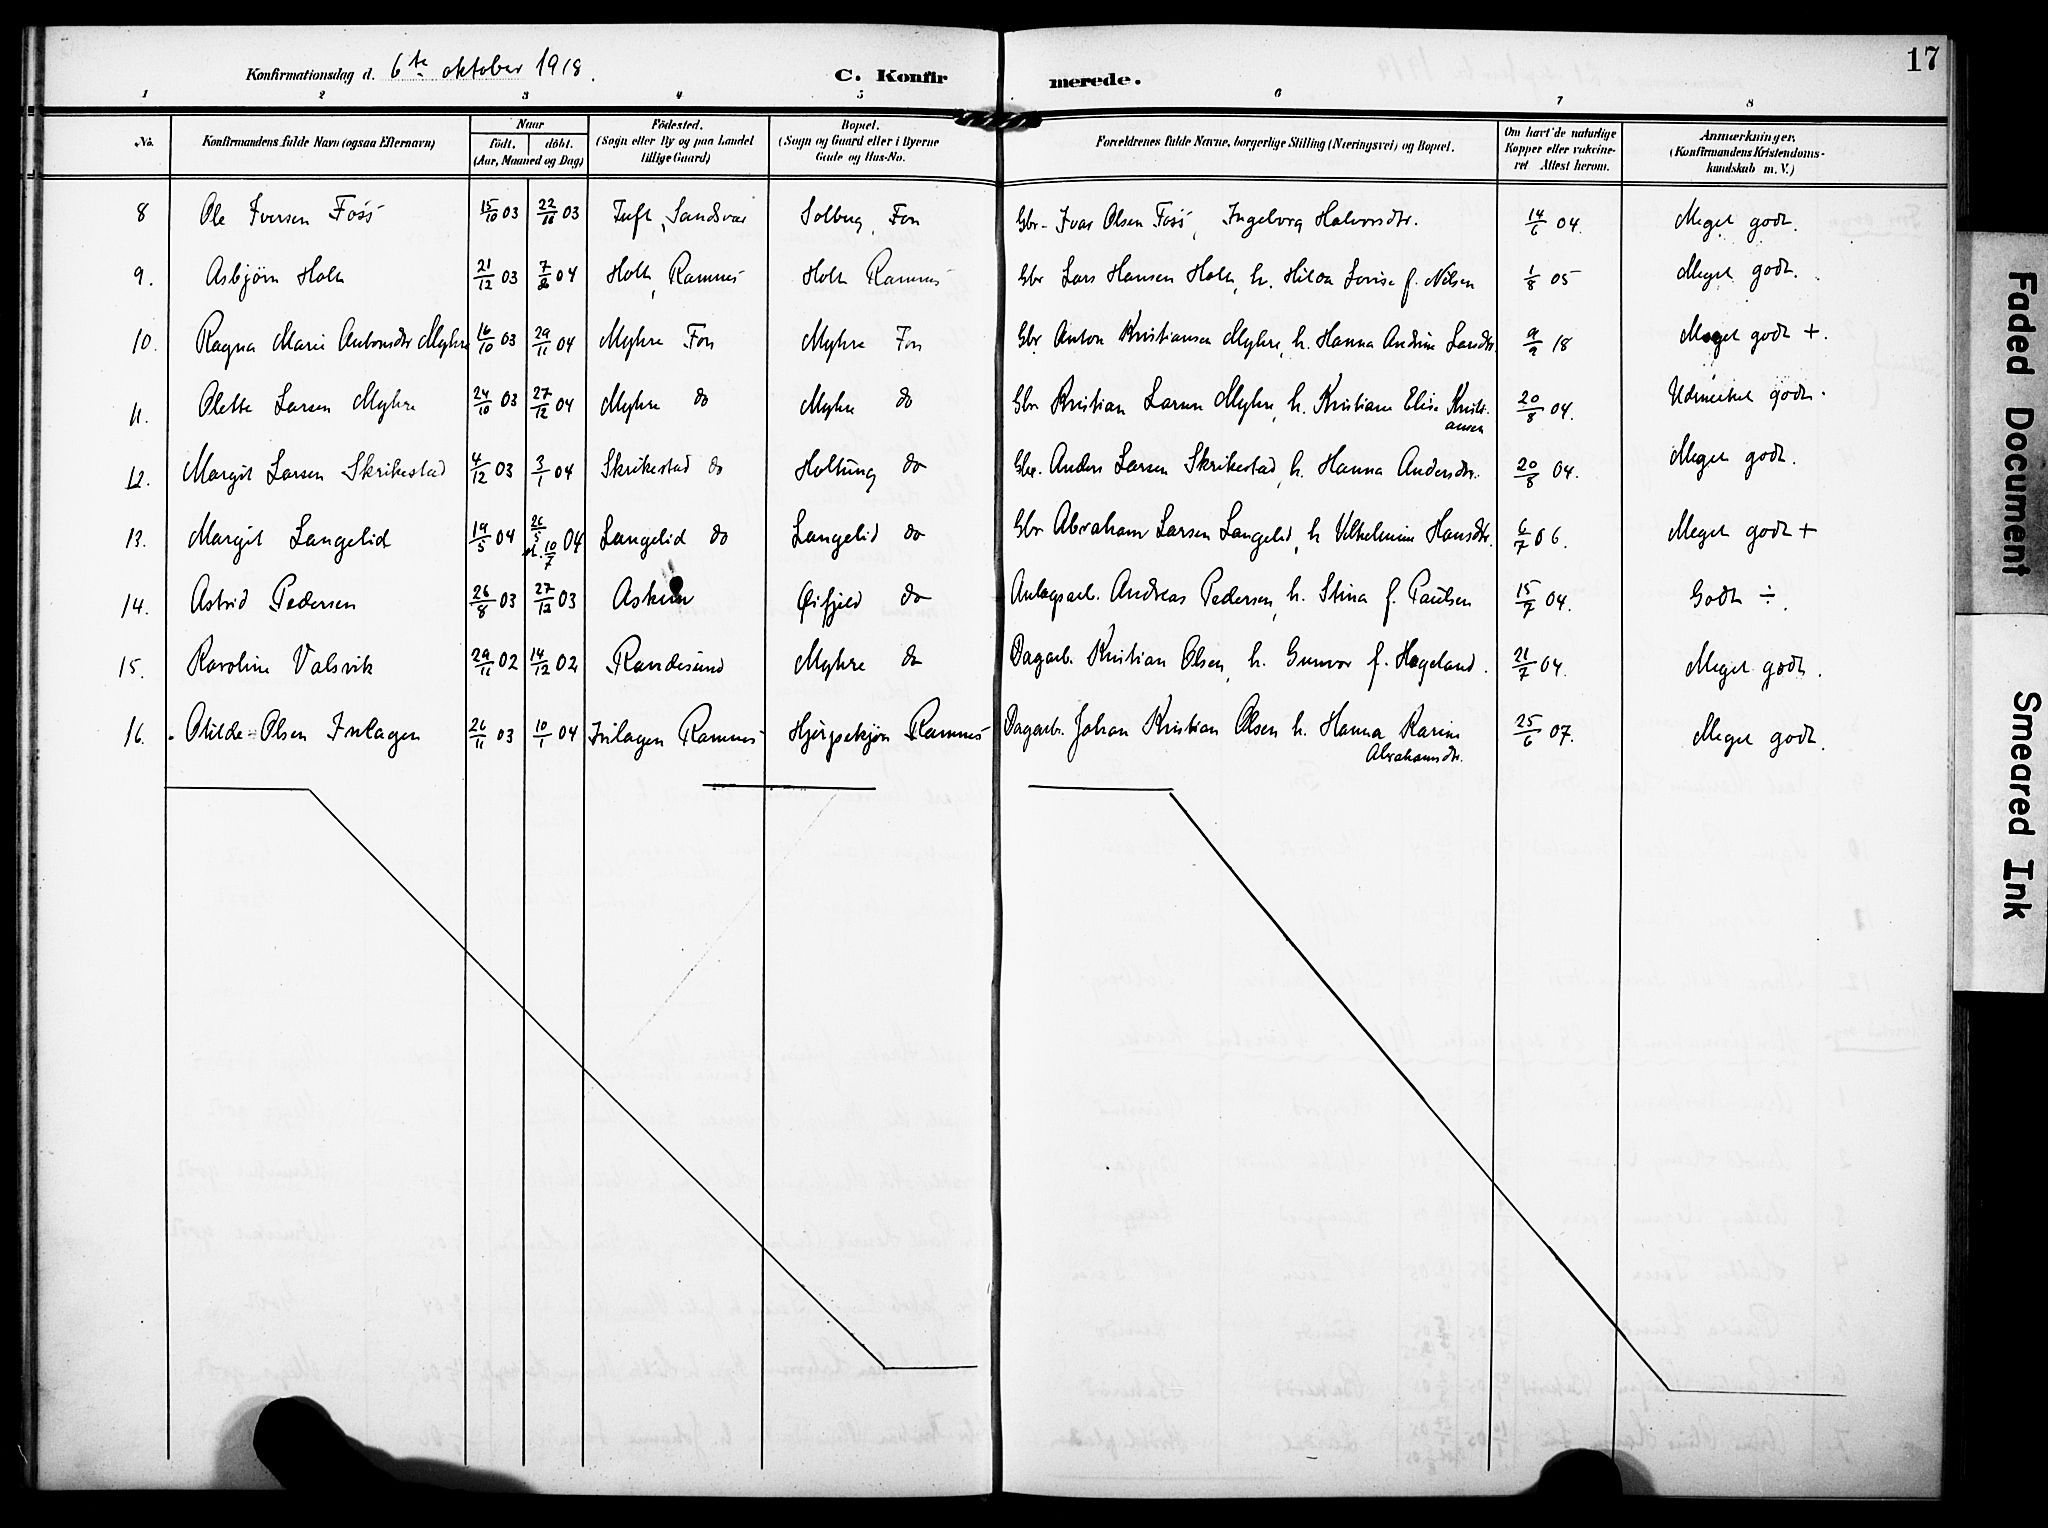 17
Konfirmationsdag d. 6te oktober 1918.
C. Konfirmerede.
1 2 3 4 5 6 7 8
No. Konfirmandens fulde Navn (ogsaa Efternavn) Naar født. døbt. (Aar, Maaned og Dag) Fødested. (Sogn eller By og paa Landet tillige Gaard) Bopæl. (Sogn og Gaard eller i Byerne Gade og Hus-No. Forældrenes fulde Navne, borgerlige Stilling (Næringsvei) og Bopæl. Om havt de naturlige Kopper eller vakcineret Attest herom. Anmærkninger. (Konfirmandens Kristendomskundskab m. V.)
8 Ole Iversen Foss 15/10 03 22/11 03 Tuft, Sandsvær Solberg, Fon Gbr. Ivar Olsen Foss, Ingeborg Halvorsdtr. 14/6 04. Meget godt.
9. Asbjørn Holt 21/12 03 7/2 04 Holt, Ramnes Holt Ramnes Gbr Lars Hansen Holt, h. Hilda Lovise f. Nilsen 1/8 05 Meget godt.
10. Ragna Marie Antonsdtr Myhre 16/10 03 29/11 04 Myhre Fon Myhre Fon Gbr Anton Kristiansen Myhre, h. Hanna Andrine Larsdtr. 9/9 18 Meget godt +.
11. Olette Larsen Myhre 24/10 03 27/12 04 Myhre do Myhre do Gbr Kristian Larsen Myhre, h. Kristiane Elise Kristi-
ansen 20/8 04. Udmerket godt.
12. Margit Larsen Skrikestad 4/12 03 3/1 04 Skrikestad do Holtung do Gbr. Anders Larsen Skrikestad, h. Hanna Andersdtr. 20/8 04. Meget godt.
13. Margit Langelid 19/5 04 26/5 st. 10/7 04 Langelid do Langelid do Gbr Abraham Larsen Langelid, h Vilhelmine Hansdtr. 6/7 06. Meget godt +
14. Astrid Pedersen 26/8 03 27/12 03 Askim Øifjeld do Anlegsarb. Andreas Pedersen, h. Stina f. Paulsen 15/7 04. Godt ÷.
15. Karoline Valsvik 29/11 02 14/12 02 Randesund Myhre do Dagarb. Kristian Olsen, h. Gunvor f. Høgeland. 21/7 04. Meget godt.
16. Otilde Olsen Inlagen 26/11 03 10/1 04 Inlagen Ramnes Ramnes Dagarb. Johan Kristian Olsen h. Hanna Karine
Abrahamsdtr. 25/6 07. Meget godt.
Faded Document
Smeared Ink